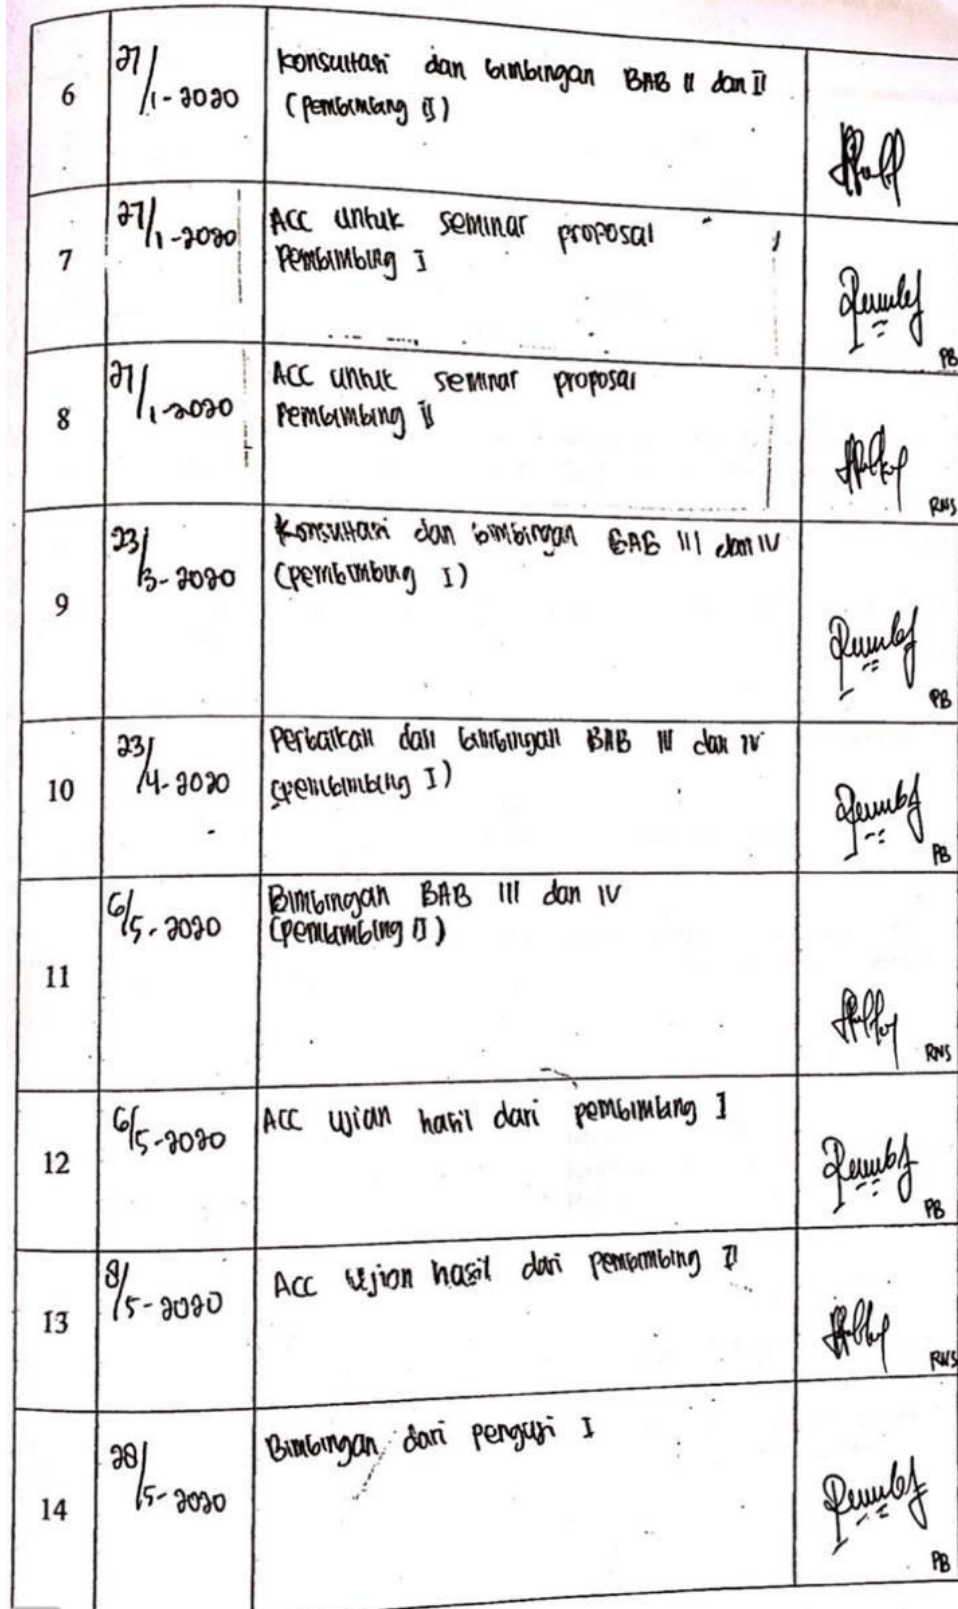 6
27/1-2020
Konsultasi dan bimbingan BAB II dan II
(Pembimbing II)
7
27/1-2020
ACC untuk seminar proposal
Pembimbing I
PB
8
27/1-2020
ACC untuk seminar proposal
Pembimbing II
RNS
9
23/3-2020
Konsultasi dan bimbingan BAB III dan IV
(pembimbing I)
PB
10
23/4-2020
Perbaikan dan bimbingan BAB III dan IV
(pembimbing I)
PB
11
6/5-2020
Bimbingan BAB III dan IV
(pembimbing II)
RNS
12
6/5-2020
ACC Ujian hasil dari pembimbing I
PB
13
8/5-2020
ACC Ujian hasil dari pembimbing II
RNS
14
28/5-2020
Bimbingan dari penguji I
PB